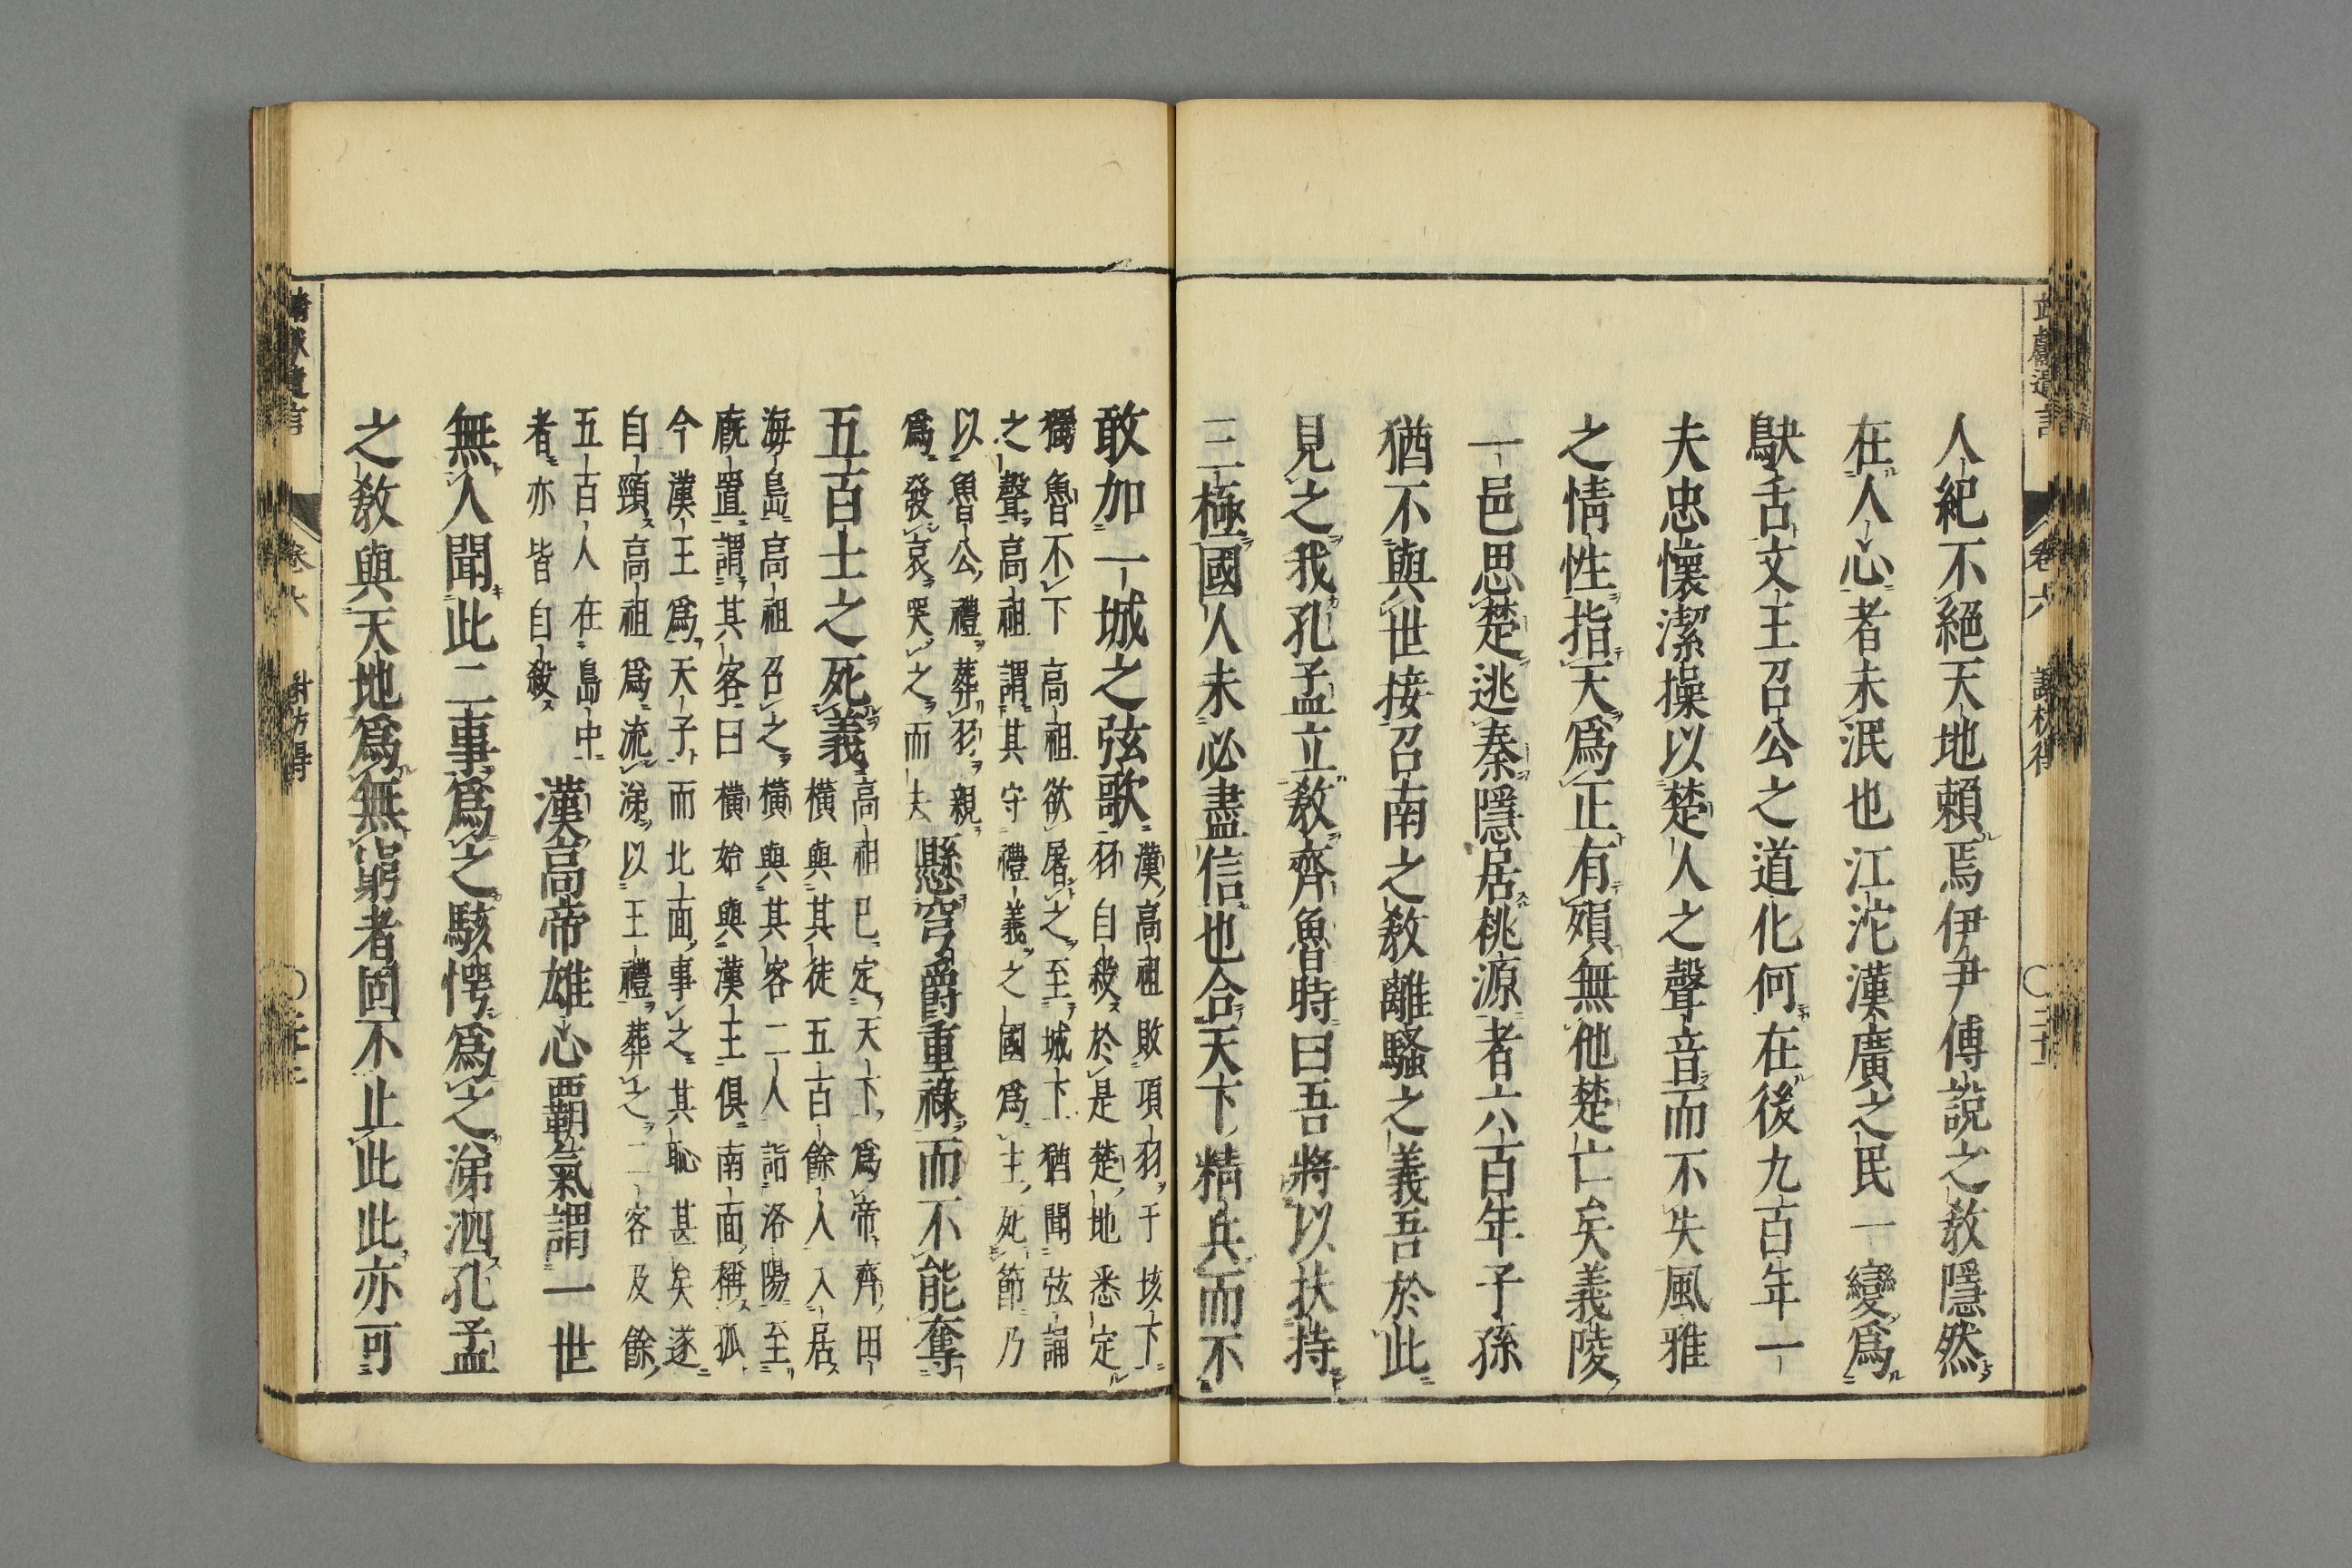 人紀不絕天地賴焉伊尹傅說之敎隱然
在人心者未泯也江沱漢廣之民一變爲
鴃舌文王召公之道化何在後九百年一
夫忠懷潔操以楚人之聲音而不失風雅
之情性指天爲正有殞無他楚亡矣義陵
一邑思楚逃秦隱居桃源者六百年子孫
猶不與世接召南之敎離騷之義吾於此
見之我孔孟立敎齊魯時曰吾將以扶持
三極國人未必盡信也合天下精兵而不
敢加一城之弦歌
漢高祖敗項羽于垓下
羽自殺於是楚地悉定
獨魯不下高祖欲屠之至城下猶聞弦誦
之聲高祖謂其守禮義之國爲主死節乃
以魯公禮葬羽親
爲發哀哭之而去
懸穹爵重祿而不能奪
五百士之死義
高祖已定天下爲帝齊田
橫與其徒五百餘人入居
海島高祖召之橫與其客二人詣洛陽至
廐置謂其客曰橫始與漢王俱南面稱孤
今漢王爲天子而北面事之其恥甚矣遂
自頸高祖爲流涕以王禮葬之二客及餘
五百人在島中
者亦皆自殺
漢高帝雄心覇氣謂一世
無人聞此二事爲之駭愕爲之涕泗孔孟
之敎與天地爲無窮者固不止此此亦可
卷六